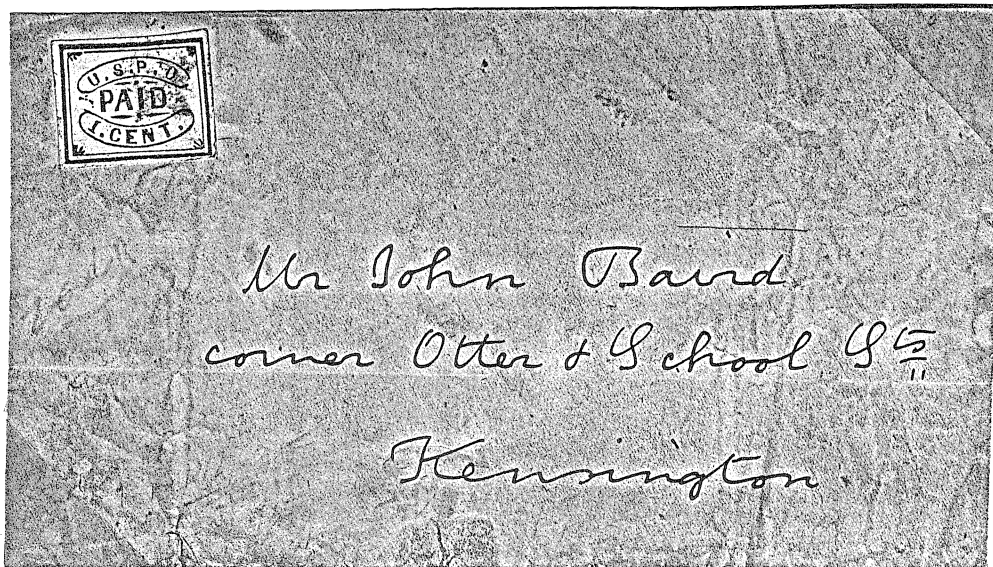 U.S.P.O.
PAID
1.CENT.
Mr John Baird
corner Otter & School Sts
Kensington